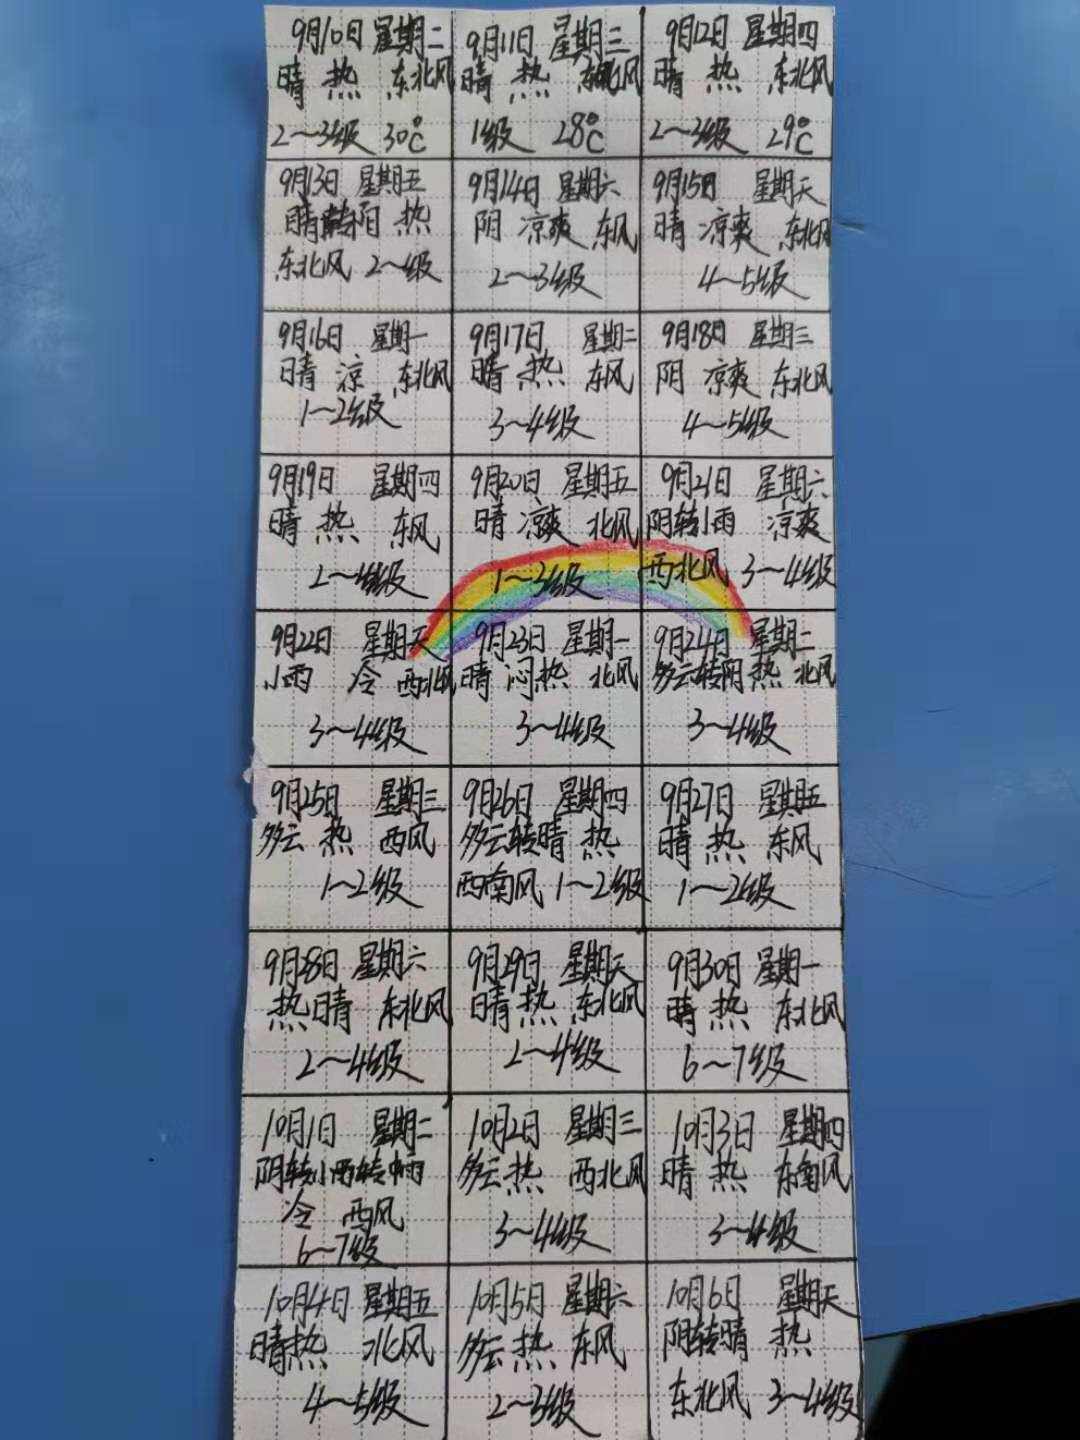 9月10日 星期二
晴 热 东北风
2～3级 30℃
9月11日 星期三
晴 热 东北风
1级 28℃
9月12日 星期四
晴 热 东北风
2～3级 29℃
9月13日 星期五
晴转阳 热
东北风 2～级
9月14日 星期六
阴 凉爽 东风
2～3级
9月15日 星期天
晴 凉爽 东北风
4～5级
9月16日 星期一
晴 凉 东北风
1～2级
9月17日 星期二
晴 热 东风
3～4级
9月18日 星期三
阴 凉爽 东北风
4～5级
9月19日 星期四
晴 热 东风
2～4级
9月20日 星期五
晴 凉爽 北风
1～3级
9月21日 星期六
阴转小雨 凉爽
西北风 3～4级
9月22日 星期天
小雨 冷 西北风
3～4级
9月23日 星期一
晴 闷热 北风
3～4级
9月24日 星期二
多云转阴 热 北风
3～4级
9月25日 星期三
多云 热 西风
1～2级
9月26日 星期四
多云转晴 热
西南风 1～2级
9月27日 星期五
晴 热 东风
1～2级
9月28日 星期六
热 晴 东北风
2～4级
9月29日 星期天
晴 热 东北风
2～4级
9月30日 星期一
晴 热 东北风
6～7级
10月1日 星期二
阴转小雨转中雨
冷 西风
6～7级
10月2日 星期三
多云 热 西北风
3～4级
10月3日 星期四
晴 热 东南风
3～4级
10月4日 星期五
晴热 北风
4～5级
10月5日 星期六
多云 热 东风
2～3级
10月6日 星期天
阴转晴 热
东北风 3～4级